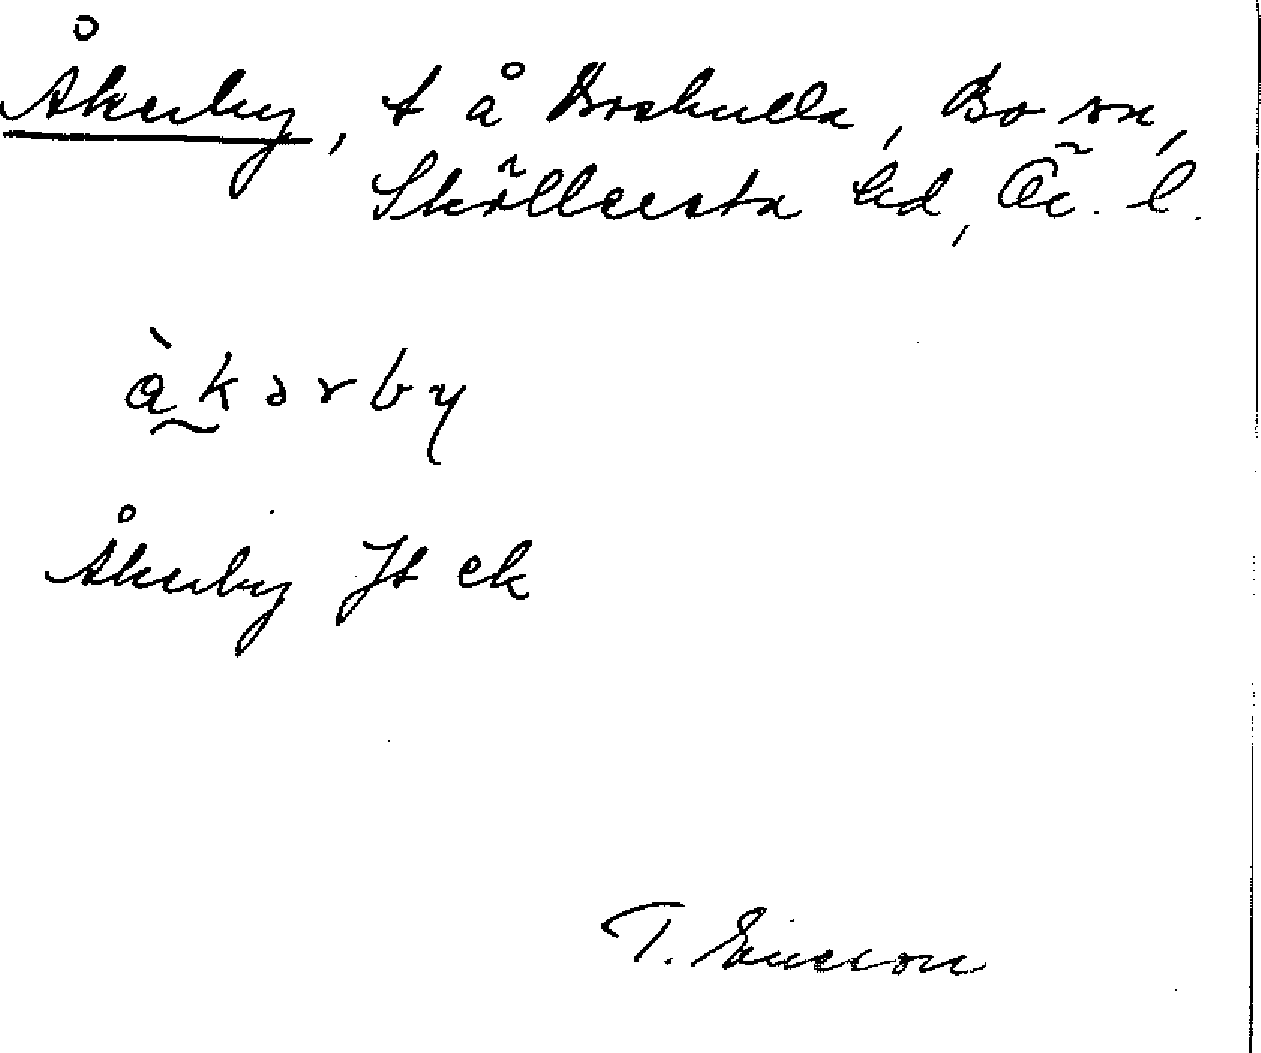 Åkerby, t å Brokulla, Bo sn,
Sköllersta hd, Ör. l.
åkərby
Åkerby Jt ek
T. Ericson